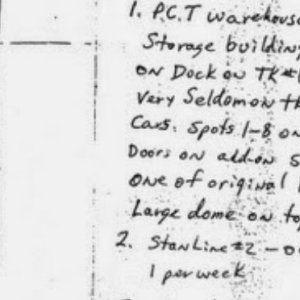 1. P.C.T warehouse
Storage building
on Dock on TK#1
Very Seldom on th
Cars. Spots 1-8 on
Doors on add-on S
One of original
Large dome on to
2. StanLine #2 - o
1 per week